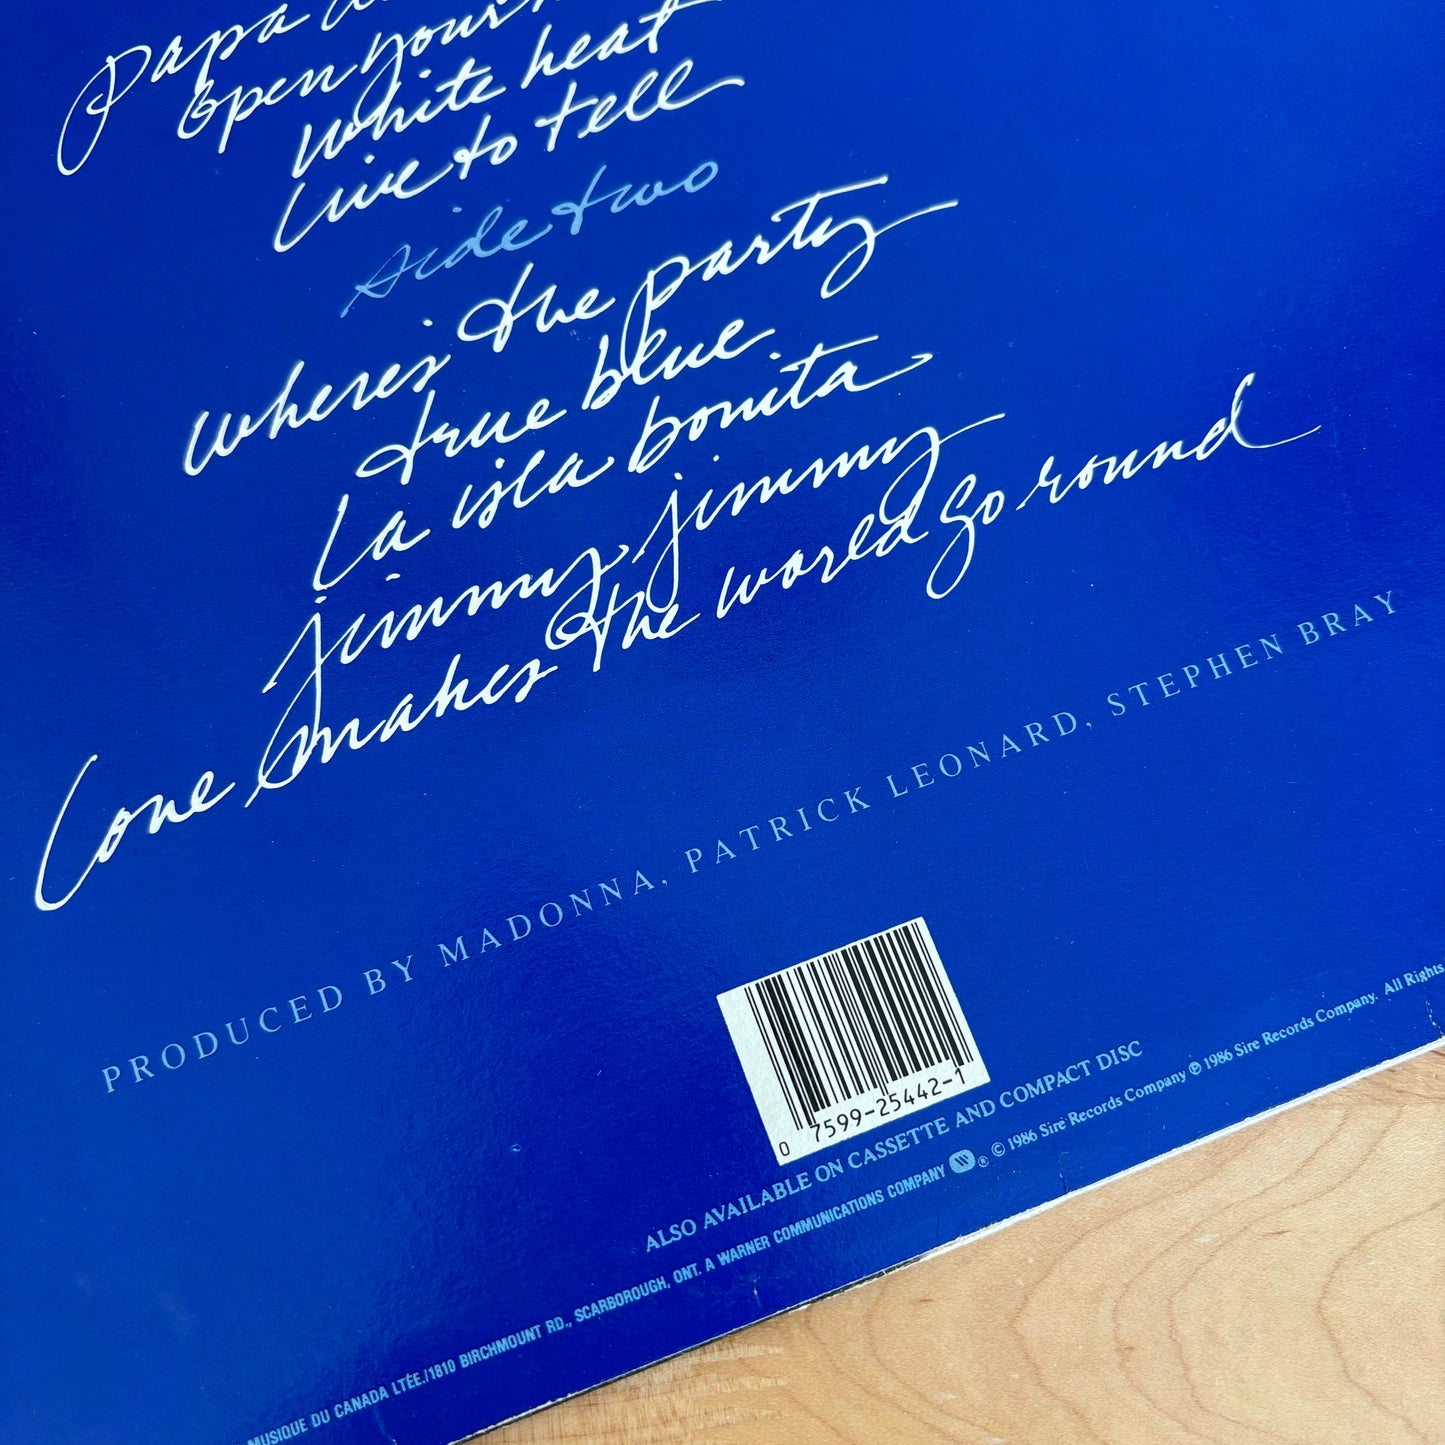 Papa
Open your
White heat
Live to tell
side two
Where's the party
True blue
La isla bonita
Jimmy, Jimmy
Love makes the world go round
PRODUCED BY MADONNA, PATRICK LEONARD, STEPHEN BRAY
0 7599-25442-1
ALSO AVAILABLE ON CASSETTE AND COMPACT DISC
MUSIQUE DU CANADA LTÉE./1810 BIRCHMOUNT RD., SCARBOROUGH, ONT. A WARNER COMMUNICATIONS COMPANY ® © 1986 Sire Records Company ℗ 1986 Sire Records Company. All Rights